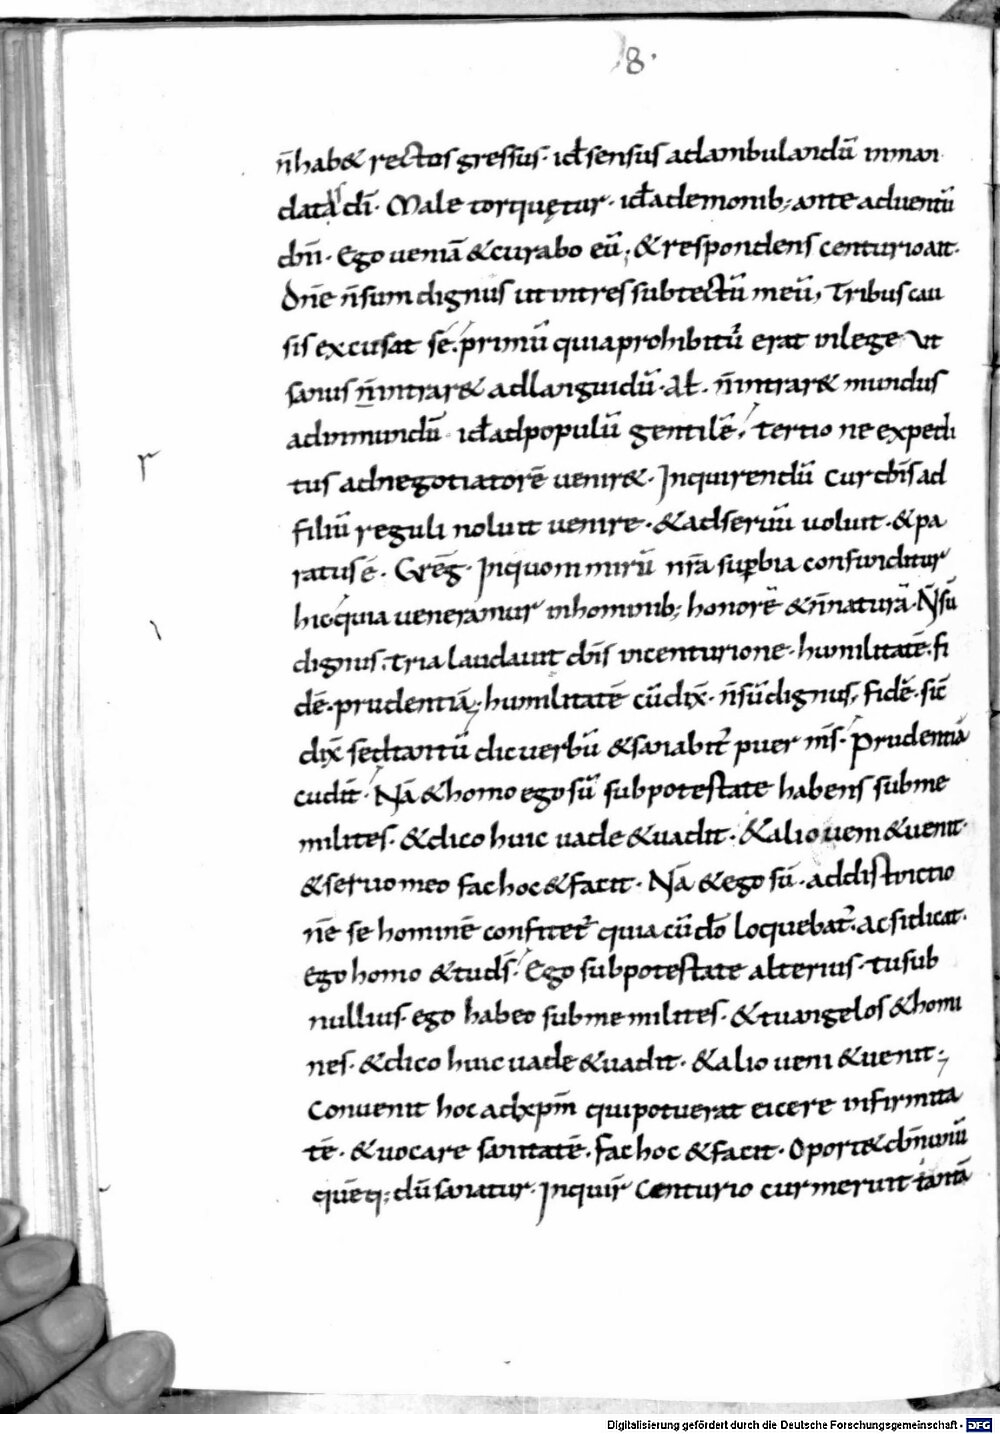 8.
n̄ hab& rectos gressus· id ÷ sensus adambulandū inman
datā di· Male torquętur· id ÷ ademonib; ante aduentū
dn̄i· Ego ueniā &curabo eū; &respondens centurio ait·
Dn̄e n̄ sum dignus ut intres subtectū meū, Tribus cau
sis excusat se· primū quia prohibitū erat inlege ut
sanus n̄ intrar& adlanguidū· Al̄· n̄ intrar& mundus
adinmundū id ÷ adpopulū gentilē, tertio ne expedi
tus adnegotiatorē uenir&· Inquirendū cur dn̄s ad
filiū reguli noluit uenire· &adseruū uoluit· &pa
ratus ē· Greg̅· Inquo nimirū nr̄a suꝑbia confunditur
hic· quia ueneramur inhominib; honorē &n̄ naturā· N̄ sū
dignus· tria laudauit dn̄s incenturione· humilitatē· fi
dē· prudentiā; humilitatē cū dix̄· n̄ sū dignus, fidē· sic̄
dix̄ sed tantū dic uerbū &sanabit̄ puer m̄s· Prudentiā
cū dix̄· Nā &homo ego sū sub potestate habens subme
milites· &dico huic uade &uadit· &alio ueni &uenit·
&seruo meo fac hoc &facit· Nā &ego sū· addistinctio
nē se hominē confitet̄ quia cū dō loquebat̄· Ac si dicat·
Ego homo &tu ds̄· Ego subpotestate alterius· tu sub
nullius· ego habeo subme milites· &tu angelos &homi
nes· &dico huic uade &uadit· &alio ueni &uenit·,
Conuenit hoc adxp̄m qui potuerat eicere infirmita
tē· &uocare sanitatē· fac hoc &facit· Oport& dn̄m unū
quēq; dū sanatur· Inquir̄ Centurio cur meruit tantā